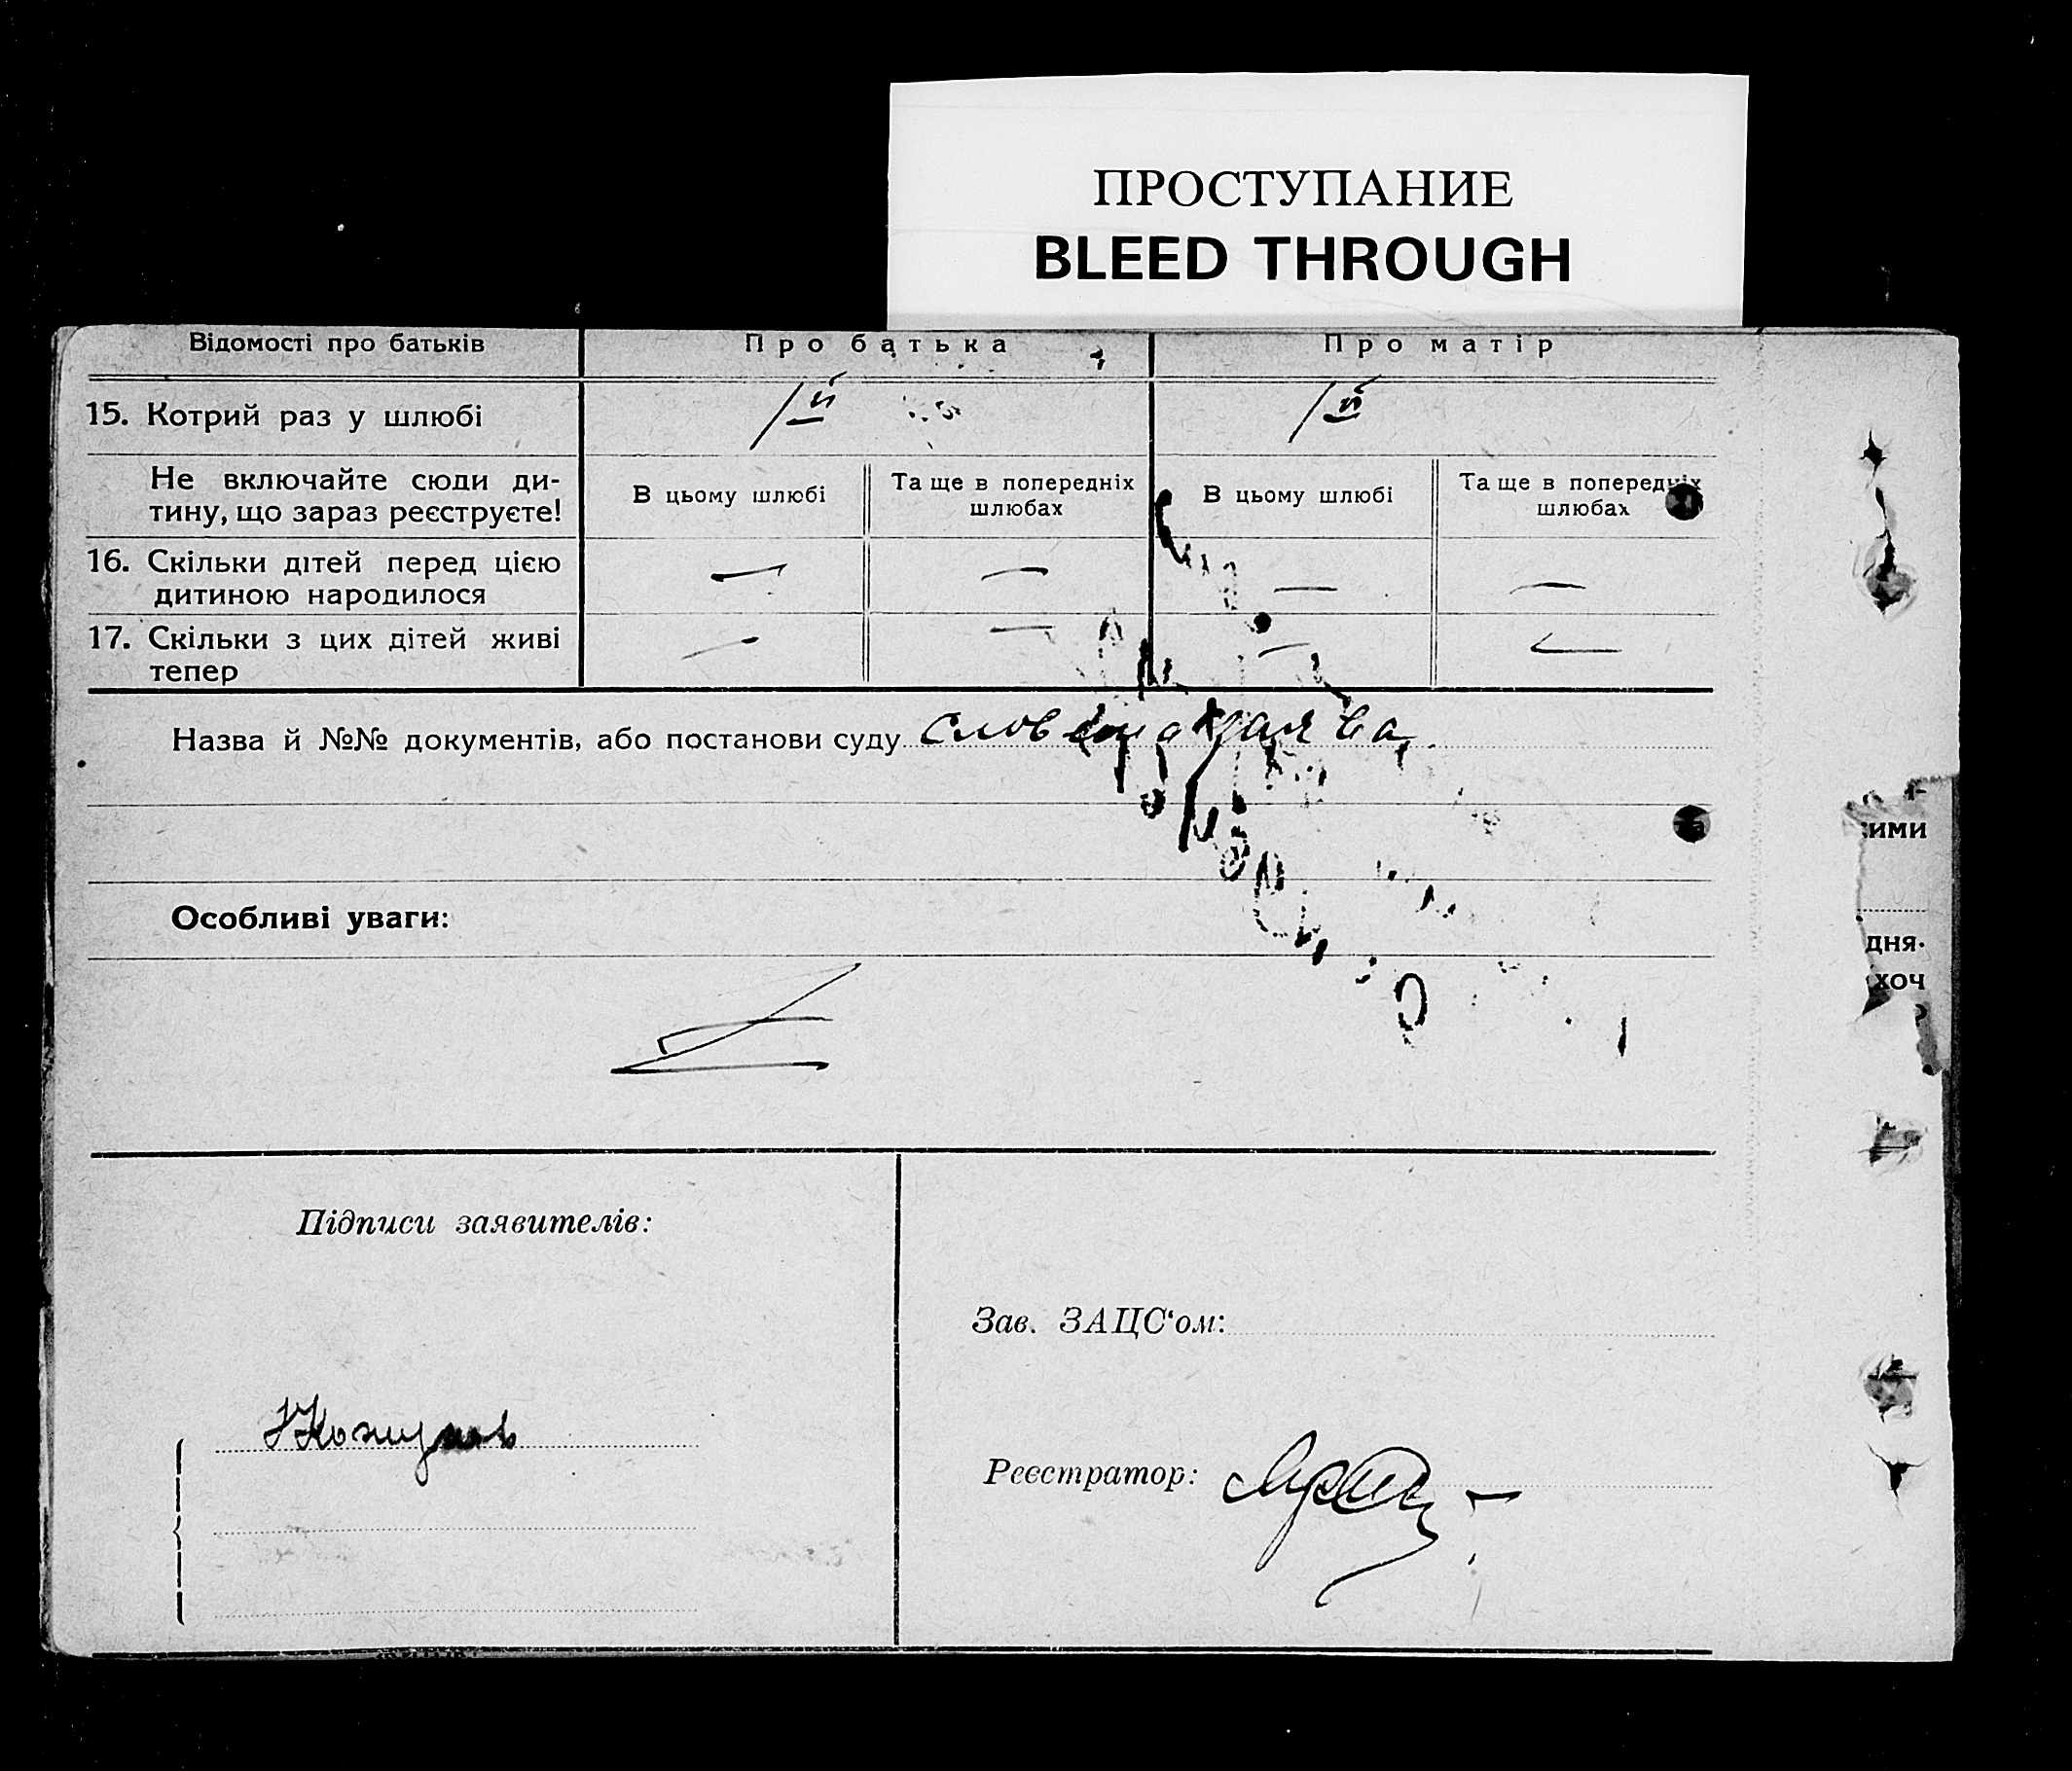 ПРОСТУПАНИЕ
BLEED THROUGH
Відомості про батьків Про батька Про матір
15. Котрий раз у шлюбі Iй Iй
Не включайте сюди ди-
тину, що зараз реєструєте!
В цьому шлюбі
Та ще в попередніх
шлюбах
В цьому шлюбі
Та ще в попередніх
шлюбах
16. Скільки дітей перед цією
дитиною народилося — — — —
17. Скільки з цих дітей живі
тепер — — — —
Назва й №№ документів, або постанови суду заява
Особливі уваги:
Підписи заявителів:
Зав. ЗАЦС‘ом:
Реєстратор:
ими
дня.
хоч
?